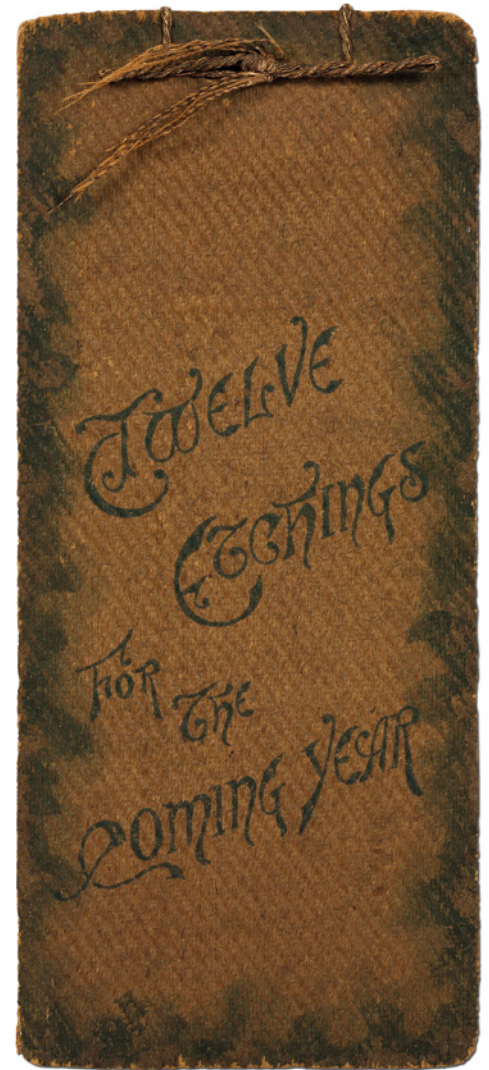 Twelve
Etchings
For
The
Coming Year